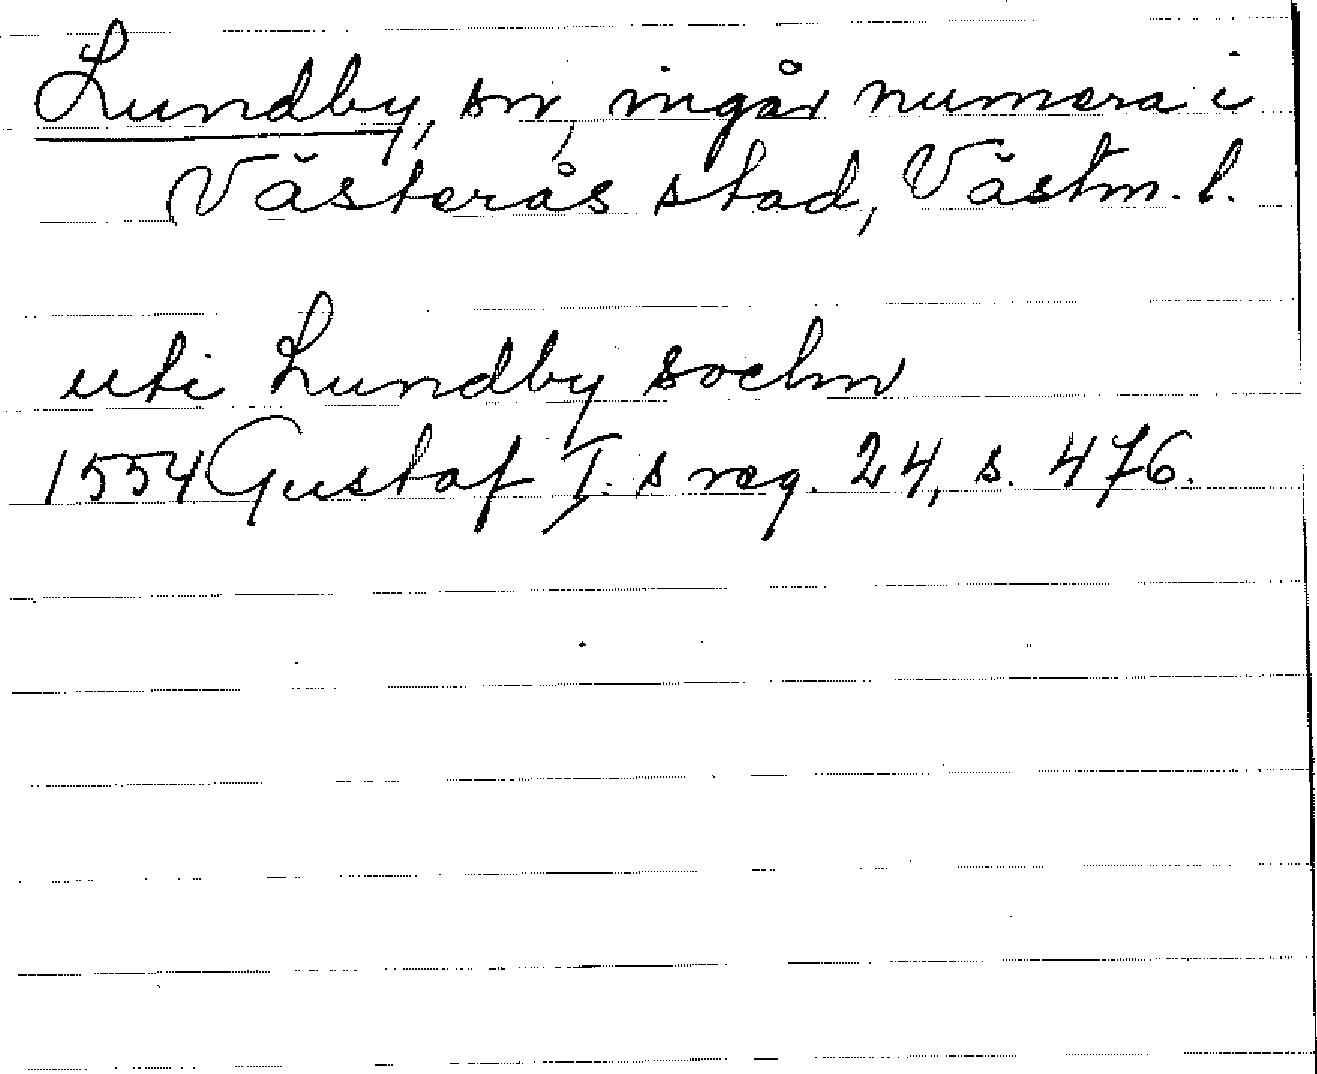 Lundby, sn, ingår numera i
Västerås stad, Västm. l.
uti Lundby sochn
1554 Gustaf I:s reg. 24, s. 476.